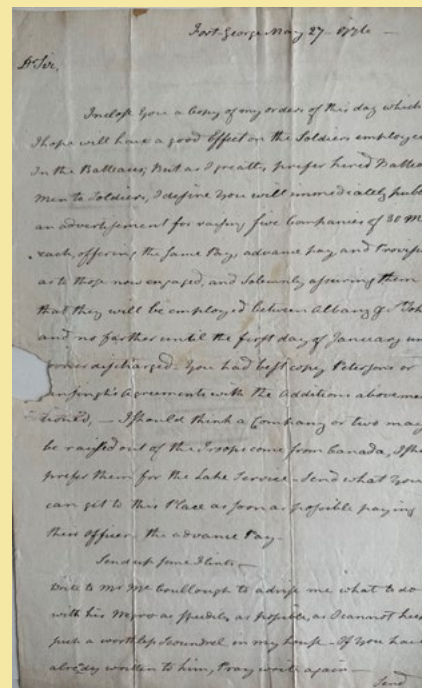 Fort George May 27 - 1776 -
Dr Sir,
Inclose You a Copy of my orders of this day which
I hope will have a good Effect on the Soldiers employed
In the Batteaus, But as I greatly prefer hired Batteau
Men to Soldiers, I desire You will immediately publ
an advertisement for raising five Companies of 30 M
each, offering the same Pay, advance pay and Provis
as to those now engaged, and Solemnly assuring them
that they will be employed between Albany & St Joh
and no farther until the first day of January un
sooner discharged. You had best copy Petersons or
Agreements with the Additions aboveme
tioned, - I should think a Company or two may
be raised out of the Troops come from Canada, I sh
prefer them for the Lake Service. Send what You
can get to this Place as soon as possible paying
their officers the advance Pay.
Send up some Flints -
Write to Mr McCoullough to advise me what to do
with his Negro as speedily as possible, as I cannot keep
such a worthless Scoundrel in my house - If You have
already written to him, Pray write again -
Send